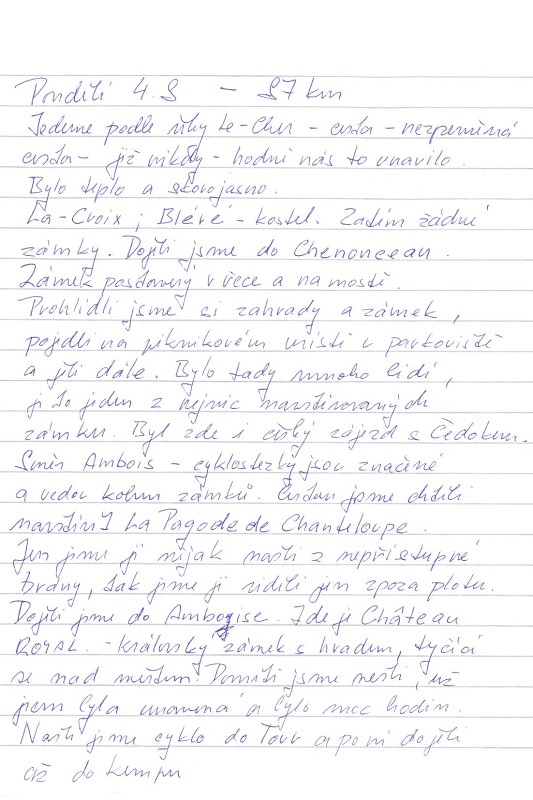 Pondělí 4.8 - 87 km
Jedeme podle řeky Le-Cher - cesta - nezpevněná
cesta - již nikdy - hodně nás to unavilo.
Bylo teplo a skorojasno.
La-Croix, Bléré - kostel. Zatím žádné
zámky. Dojeli jsme do Chenonceau.
Zámek postavený v řece a na mostě.
Prohlídli jsme si zahrady a zámek,
pojedli na piknikovém místě u parkoviště
a jeli dále. Bylo tady mnoho lidí,
je to jeden z nejvíc navštěvovaných
zámků. Byl zde i český zájezd s Čedokem.
Směr Ambois - cyklostezky jsou značené
a vedou kolem zámků. Cestou jsme chtěli
navštívit La Pagode de Chanteloupe.
Jen jsme ji nějak našli z nepřístupné
brány, tak jsme ji viděli jen zpoza plotu.
Dojeli jsme do Amboise. Zde je Château
ROYAL. - královský zámek s hradem, tyčící
se nad městem. Dovnitř jsme nešli, už
jsem byla unavená a bylo moc hodin.
Našli jsme cyklo do Tour a po ní dojeli
až do kempu